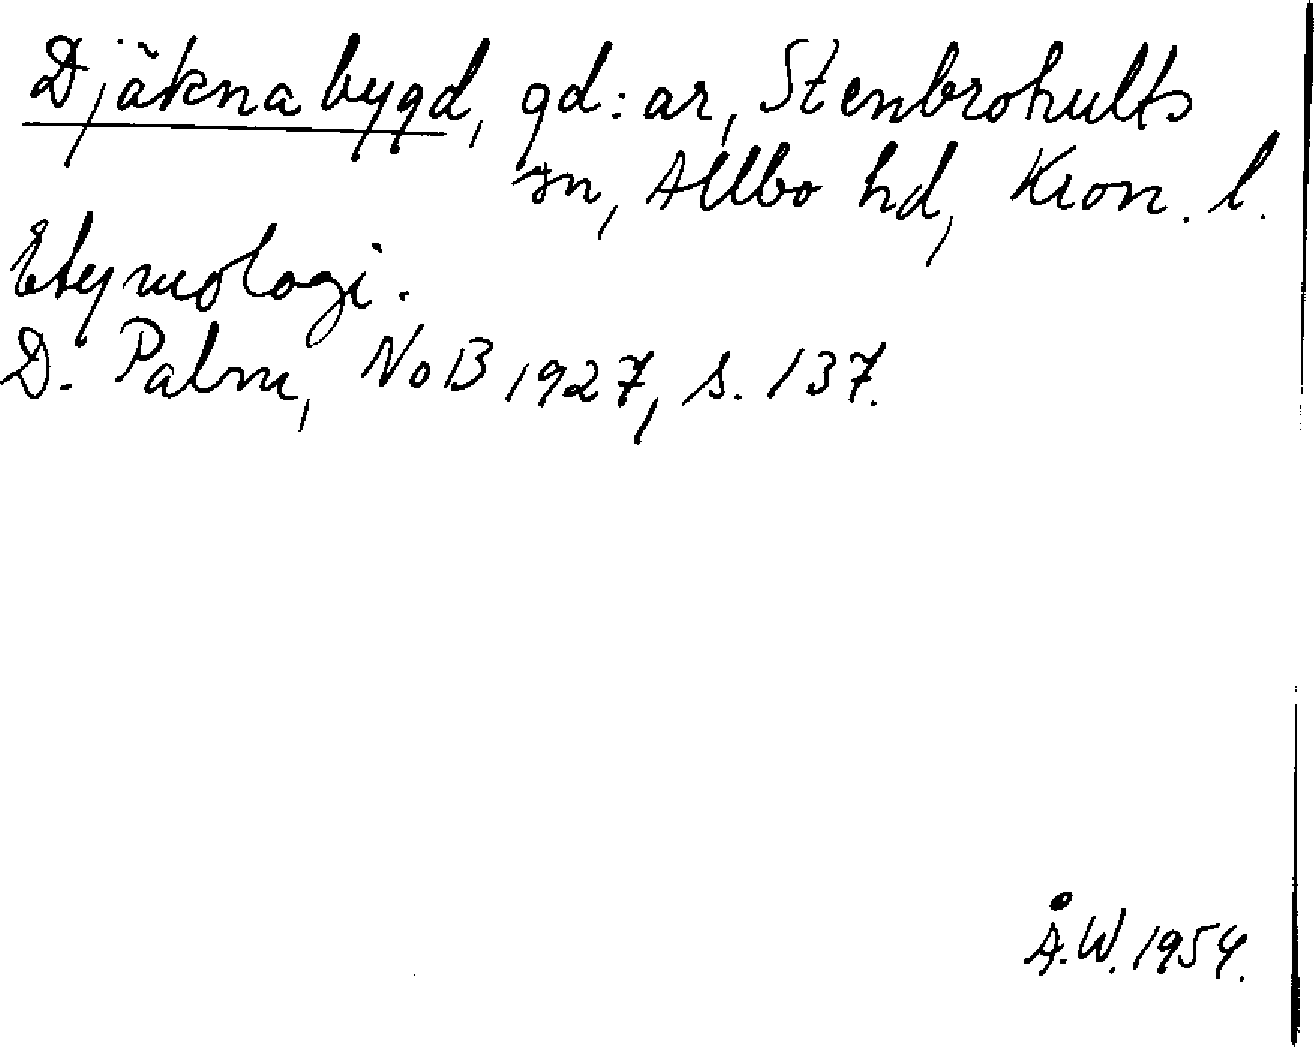 Djäknabygd, gd:ar, Stenbrohults
sn, Allbo hd, Kron. l.
Etymologi.
D. Palm, NoB 1927, s. 137.
Å.W. 1954.